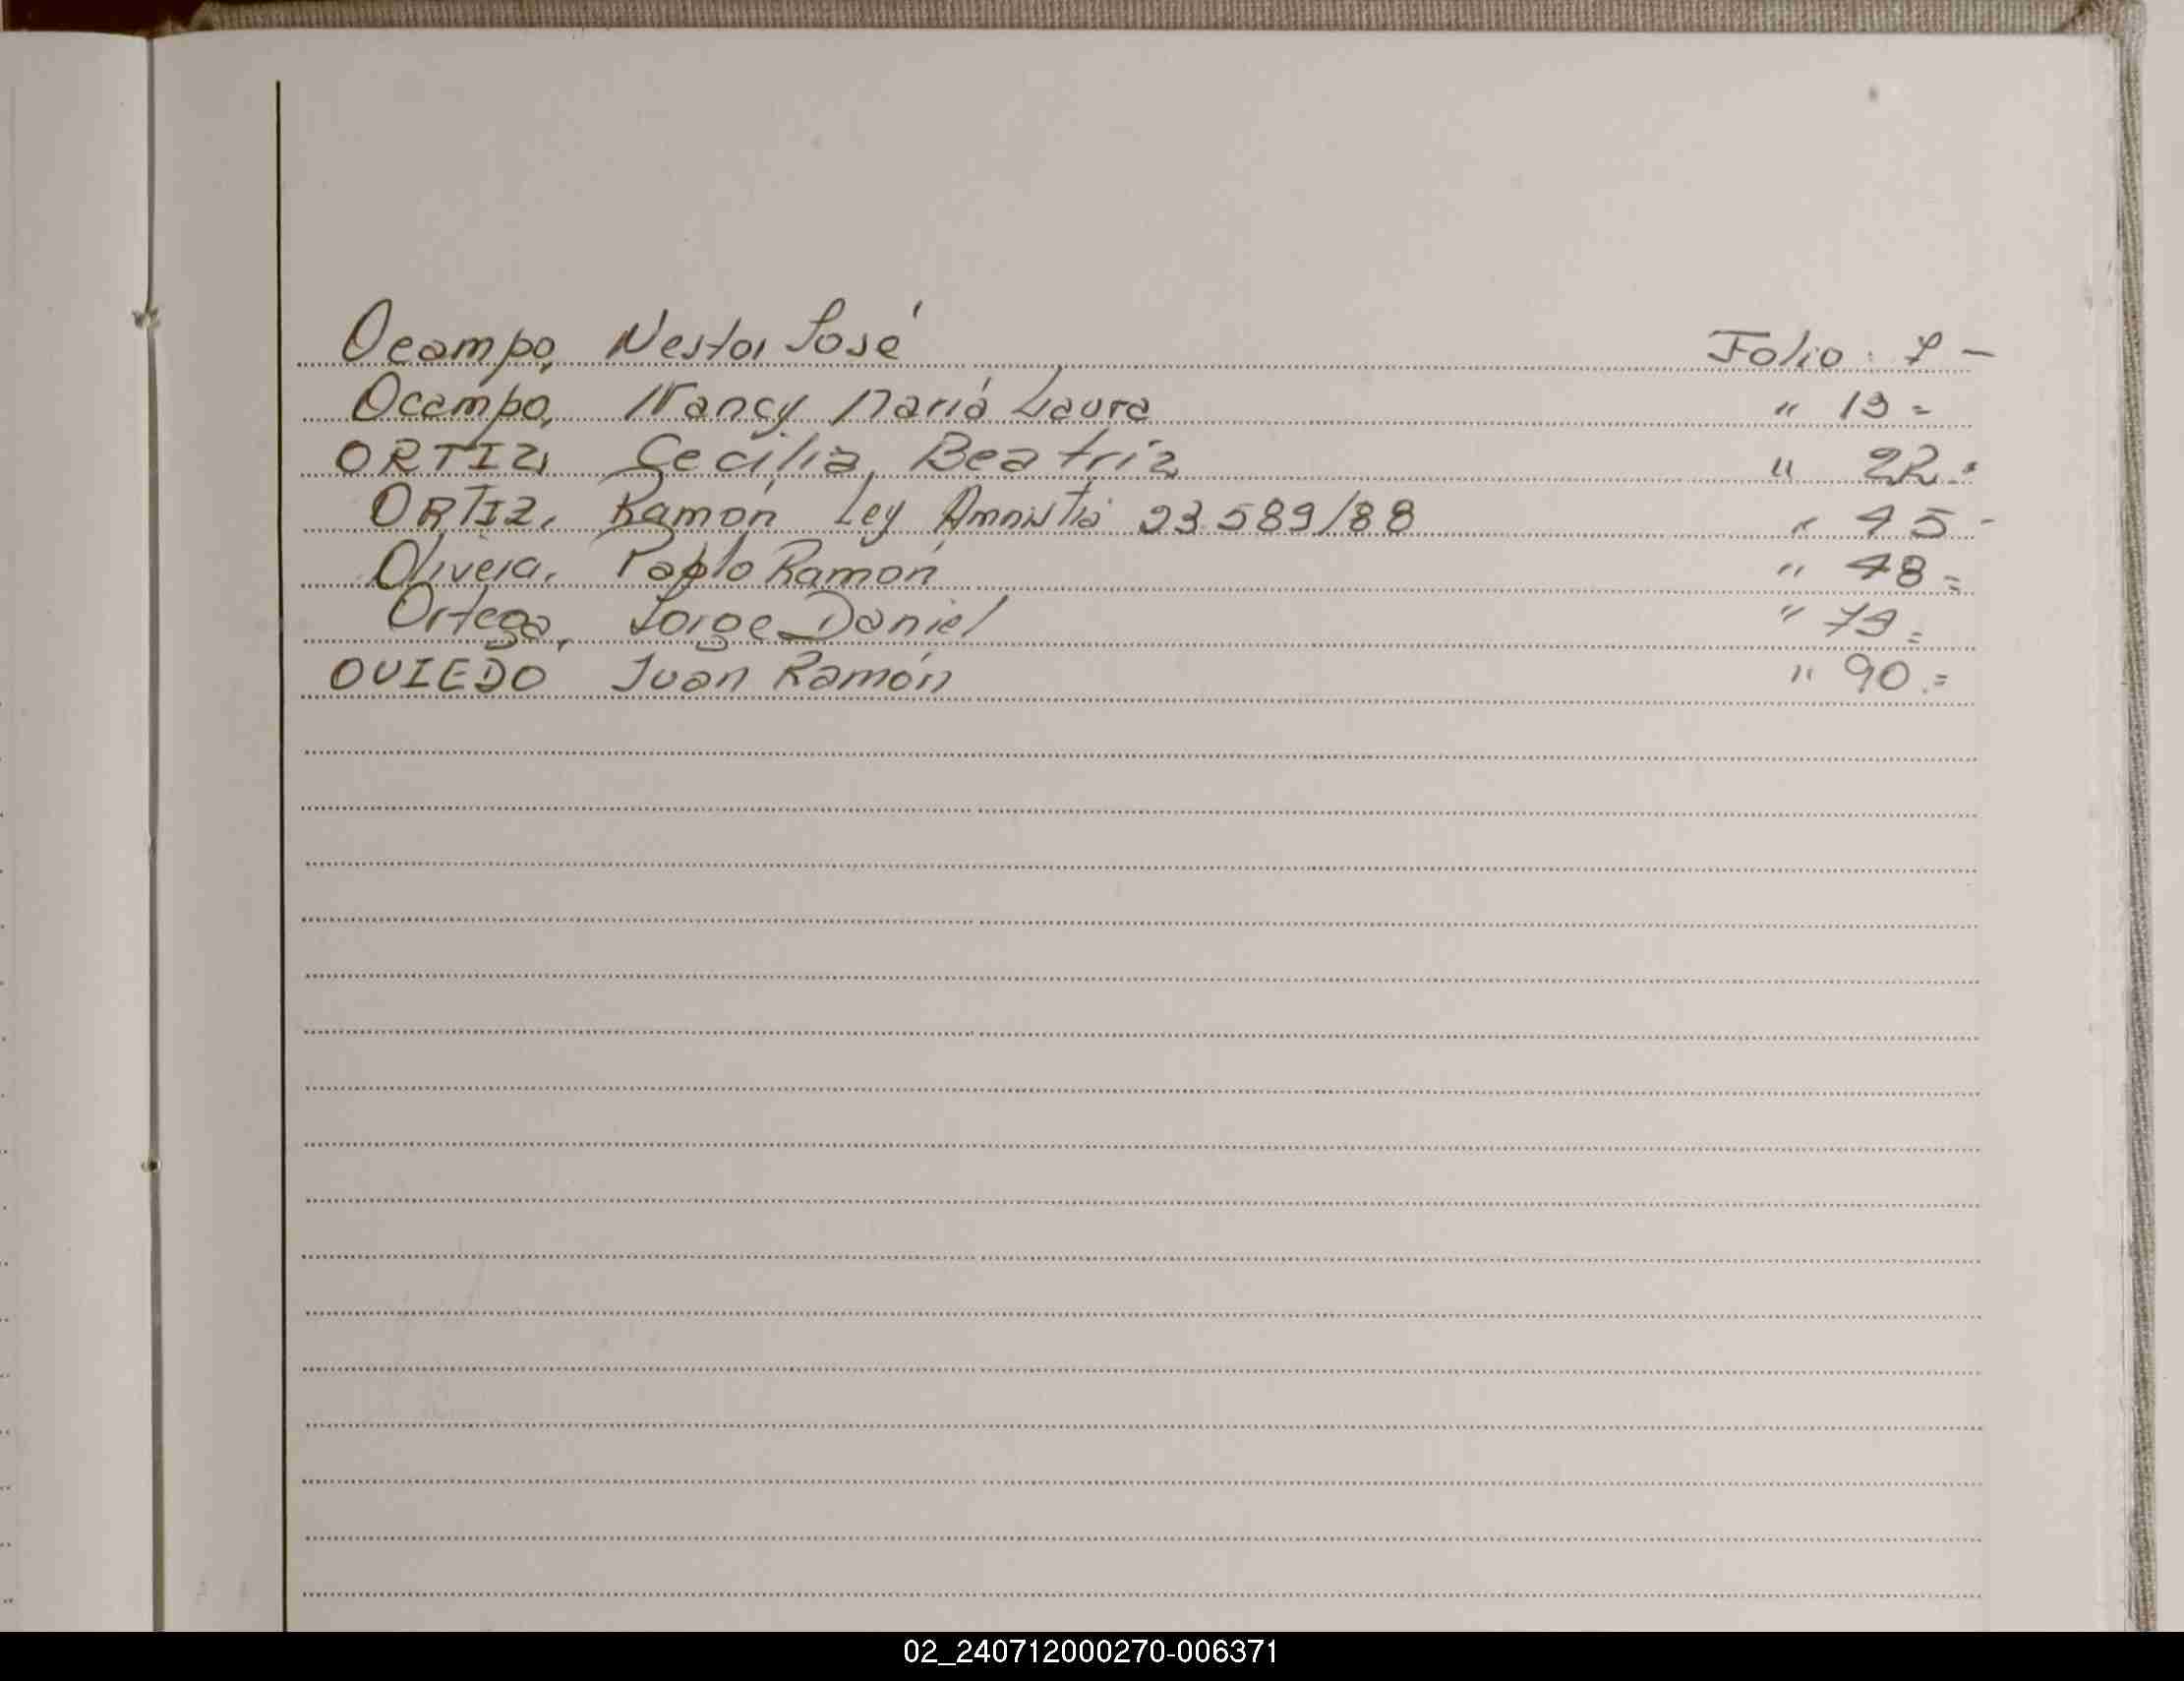 Ocampo, Nestor José Folio: 7 -
Ocampo, Nancy Mariá Laura " 19 =
ORTIZ, Cecilia, Beatriz " 22 =
ORTIZ, Ramón Ley Amnistia 23.589/88 " 45 -
Olivera, Pablo Ramón " 48 =
Ortega, Jorge Daniel " 79 =
OVIEDO Juan Ramón " 90 =
02_240712000270-006371